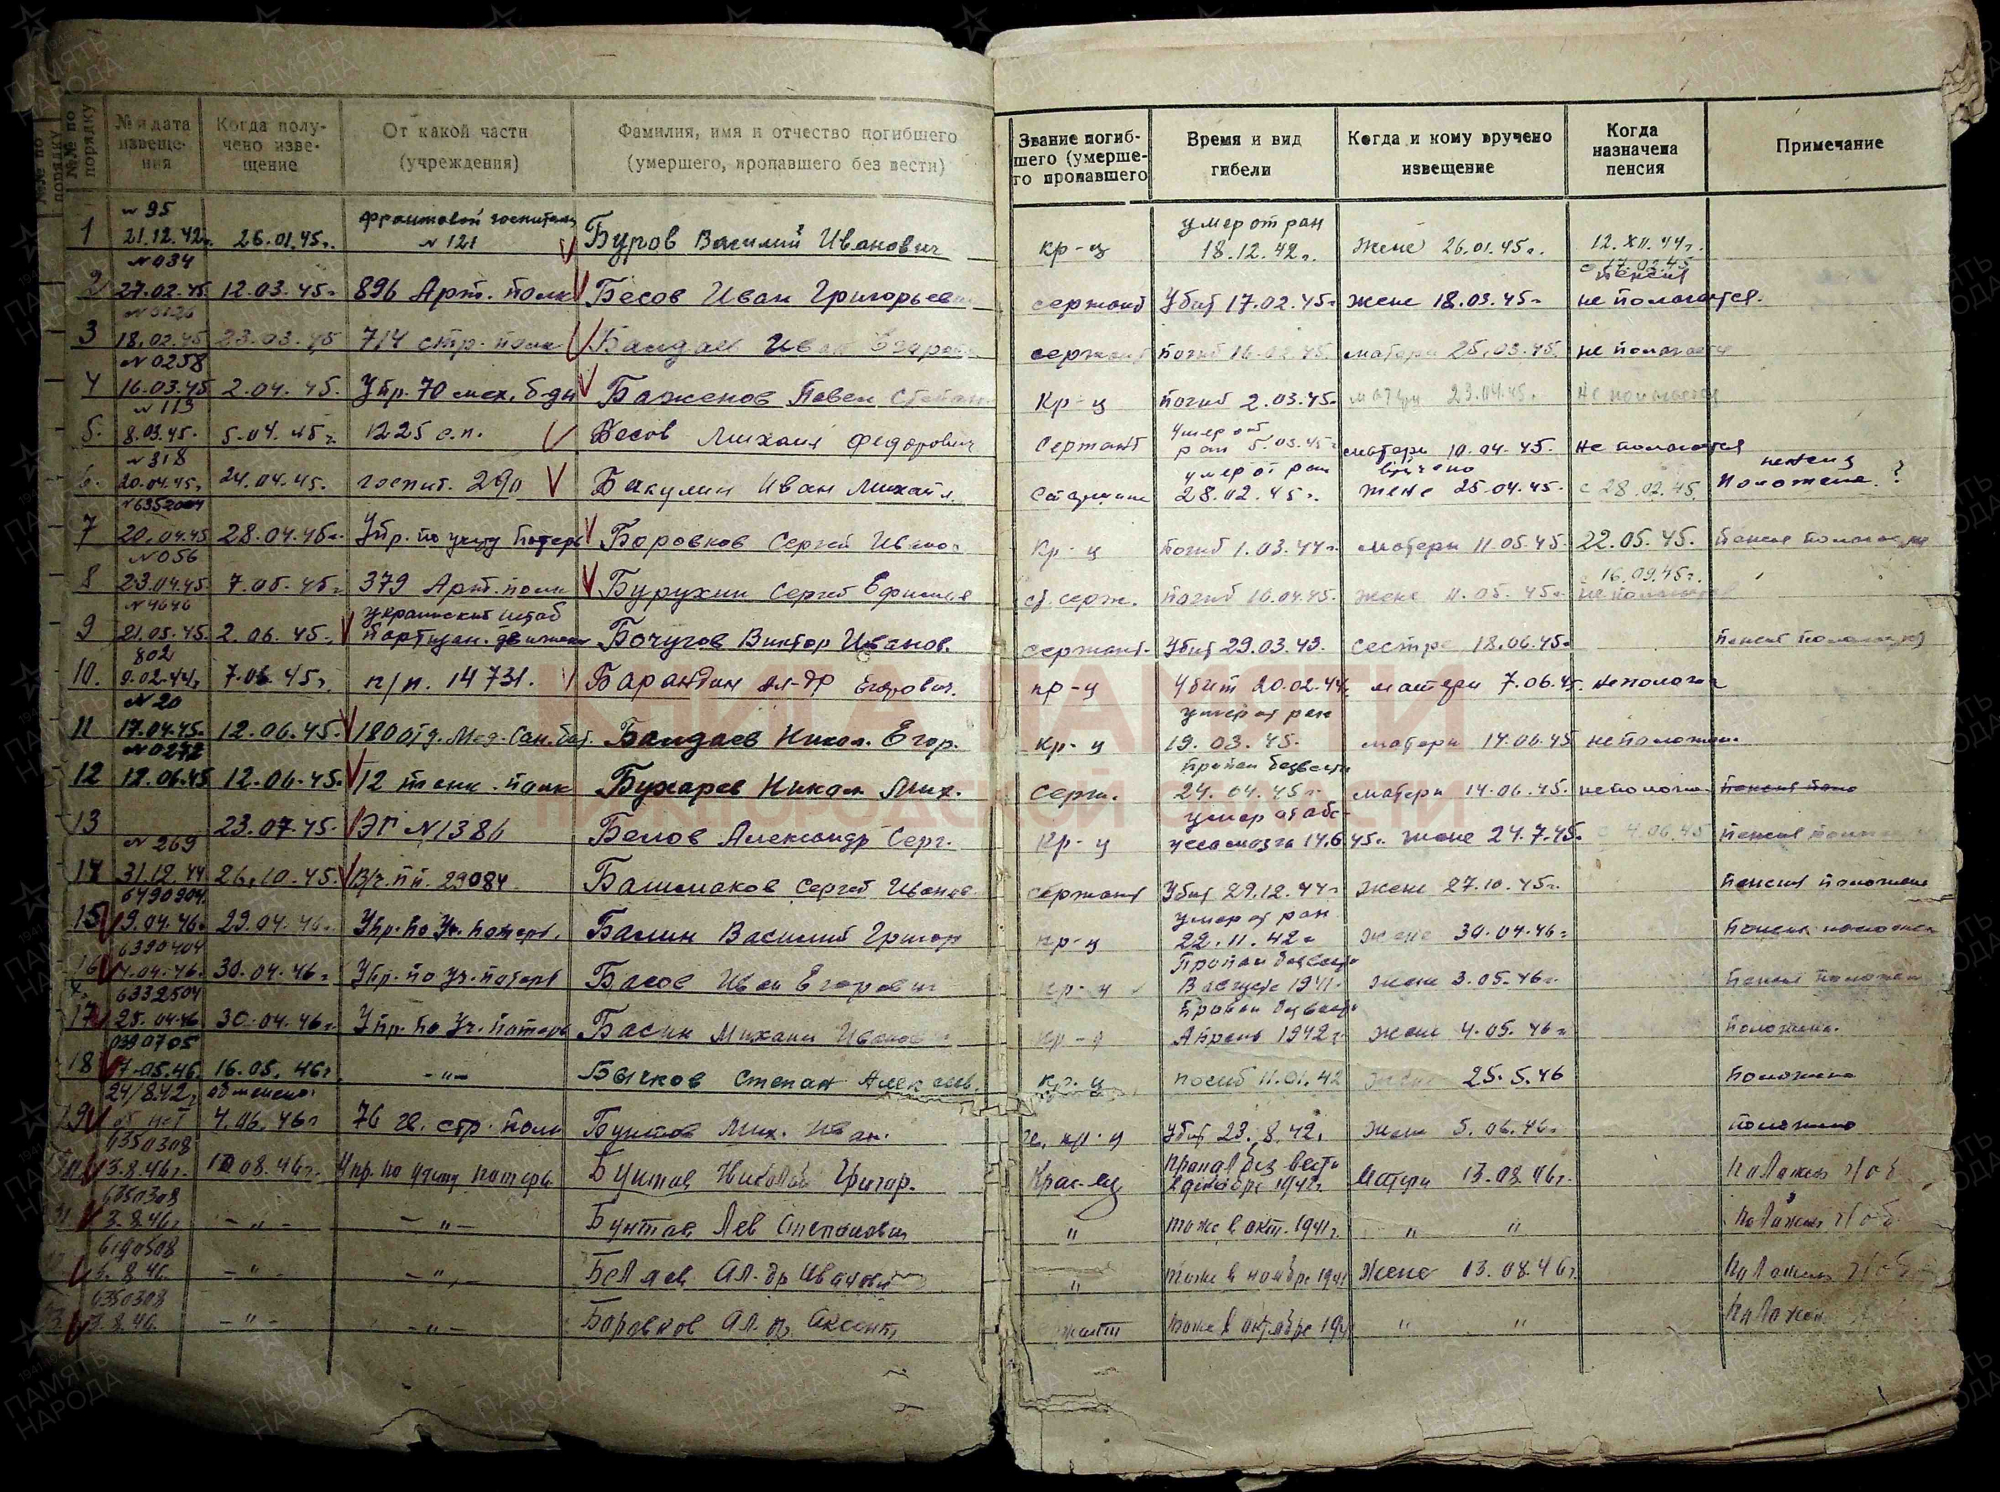 №№ по порядку
№ и дата извеще-ния
Когда полу-чено изве-щение
От какой части (учреждения)
Фамилия, имя и отчество погибшего (умершего, пропавшего без вести)
Звание погиб-шего (умерше-го пропавшего
Время и вид гибели
Когда и кому вручено извещение
Когда назначена пенсия
Примечание
1 № 95 21.12.42г. 26.01.45г. фронтовой госпиталь № 121 Буров Василий Иванович кр-ц умер от ран 18.12.42г. Жене 26.01.45г. 12.XII.44г.
2 № 034 27.02.45 12.03.45г. 896 Арт. полк Бесов Иван Григорьевич сержант Убит 17.02.45г. Жене 18.03.45г. с 17.02.45 пенсия не полагается.
3 18.02.45 23.03.45 714 стр. полк Балдаев Иван сержант погиб 16.02.45. матери 25.03.45. не полагается
4 № 0258 16.03.45 2.04.45. Упр. 70 мех. бдн Баженов Павел Степан. Кр-ц погиб 2.03.45г. матери 23.04.45г. Не полагается
5. № 113 8.03.45. 5.04.45г. 1225 с.п. Бесов Михаил Федорович Сержант умер от ран 5.03.45г. матери 10.04.45. Не полагается
6. № 318 20.04.45г. 24.04.45. госпит. Бакулин Иван Михайл. умер от ран 28.02.45г. вручено жене 25.04.45. с 28.02.45. пенсия положена ?
7 20.04.45 28.04.45г. Упр. по учету потерь Боровков Сергей Иванов. Кр-ц погиб 1.03.44г. матери 11.05.45. 22.05.45. Пенсия полагается
8 № 056 23.04.45 7.05.45г. 379 Арт. полк Бурухин Сергей Ефимов ст. серж. погиб 16.04.45. жене 11.05.45г. с 16.09.45г. не полагается
9 № 4646 21.05.45. 2.06.45. украинский штаб партизан. движения Бочугов Виктор Иванов. сержант. Убит 29.03.43. сестре 18.06.45г. Пенсия полагается
10. 802 7.06.45г. п/п. 14731. Барандин Ал-др Егорович. кр-ц Убит 20.02.44. матери 7.06.45. не полога
11 № 20 17.04.45. 12.06.45. 180 отд. Мед. Сан. бат. Балдаев Никол. Егор. Кр-ц умер от ран 19.03.45. матери 14.06.45 не положен.
12 № 0272 12.06.45 12.06.45. 12 танк. полк Бухарев Никол. Мих. Серж. пропал безвести 24.04.45г. матери 14.06.45. не положен. пенсия поло
13 23.07.45. ЭГ № 1386 Белов Александр Серг. Кр-ц умер от абс-цесса мозга 14.6 45г. жене 24.7.45г. с 14.06.45 Пенсия положена
14 № 269 31.12.44 26.10.45. В/ч. пп. 29084. Башмаков Сергей Иванов. сержант Убит 29.12.44г. жене 27.10.45г. Пенсия положена
15 6490904 9.04.46г. 29.04.46г. Упр. по Уч. потерь. Балин Василий Григор кр-ц умер от ран 22.11.42г. Жене 30.04.46г. Пенсия положена
16 6390404 4.04.46г. 30.04.46г. Упр. по уч. потерь Басов Иван Егорович кр-ц Пропал безвести В августе 1941. Жене 3.05.46г. Пенсия положен
17 6332504 25.04.46 30.04.46г. Упр. по Уч. потерь Басин Михаил Иванович кр-ц Пропал безвести Апрель 1942г. Жене 4.05.46г. Положена.
18 0390705 7.05.46 16.05.46г. -"- Бычков Степан Алексеев. кр-ц погиб 11.01.42 жене 25.5.46 Положена
19 24/8.42г. 4.06.46г 76 гв. стр. полк Бунтов Мих. Иван. гв. кр-ц Убит 23.8.42. Жене 5.06.46г. положено
6350308 3.8.46г. 10.08.46г. Упр. по учету потерь Бунтов Николай Григор. Крас-ец Пропал без вести в декабре 1942г. Матери 13.08.46г. Положен
6350308 3.8.46г. -"- -"- Бунтов Лев Степанович " тоже в окт. 1941г. " " Положен
6190508 8.46. -"- -"- Беляев Ал-др Иванович " тоже в ноябре 1941 Жене 13.08.46г. Положен
6350308 3.8.46. -"- -"- Боровков Ал-др Аксент. тоже в октябре " " Положен
КНИГА ПАМЯТИ
НИЖЕГОРОДСКОЙ ОБЛАСТИ
ПАМЯТЬ НАРОДА